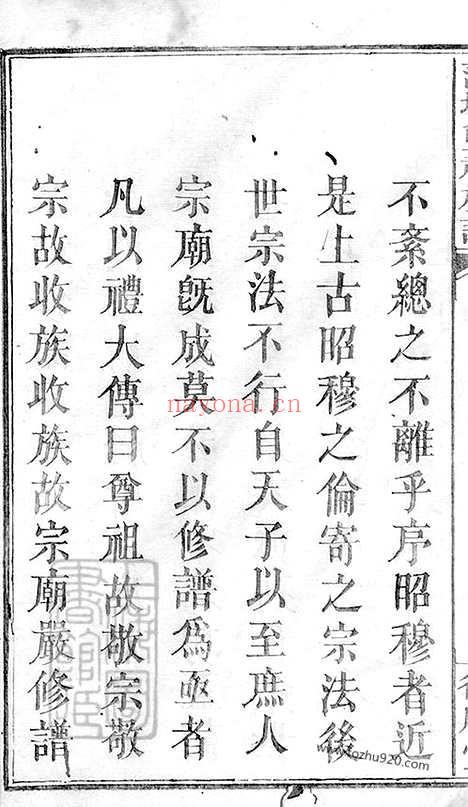 不紊總之不離乎序昭穆者近
是上古昭穆之倫寄之宗法後
世宗法不行自天子以至庶人
宗廟旣成莫不以修譜爲亟者
凡以禮大傳曰尊祖故敬宗敬
宗故收族收族故宗廟嚴修譜
nayona.cn
tczhu920.com